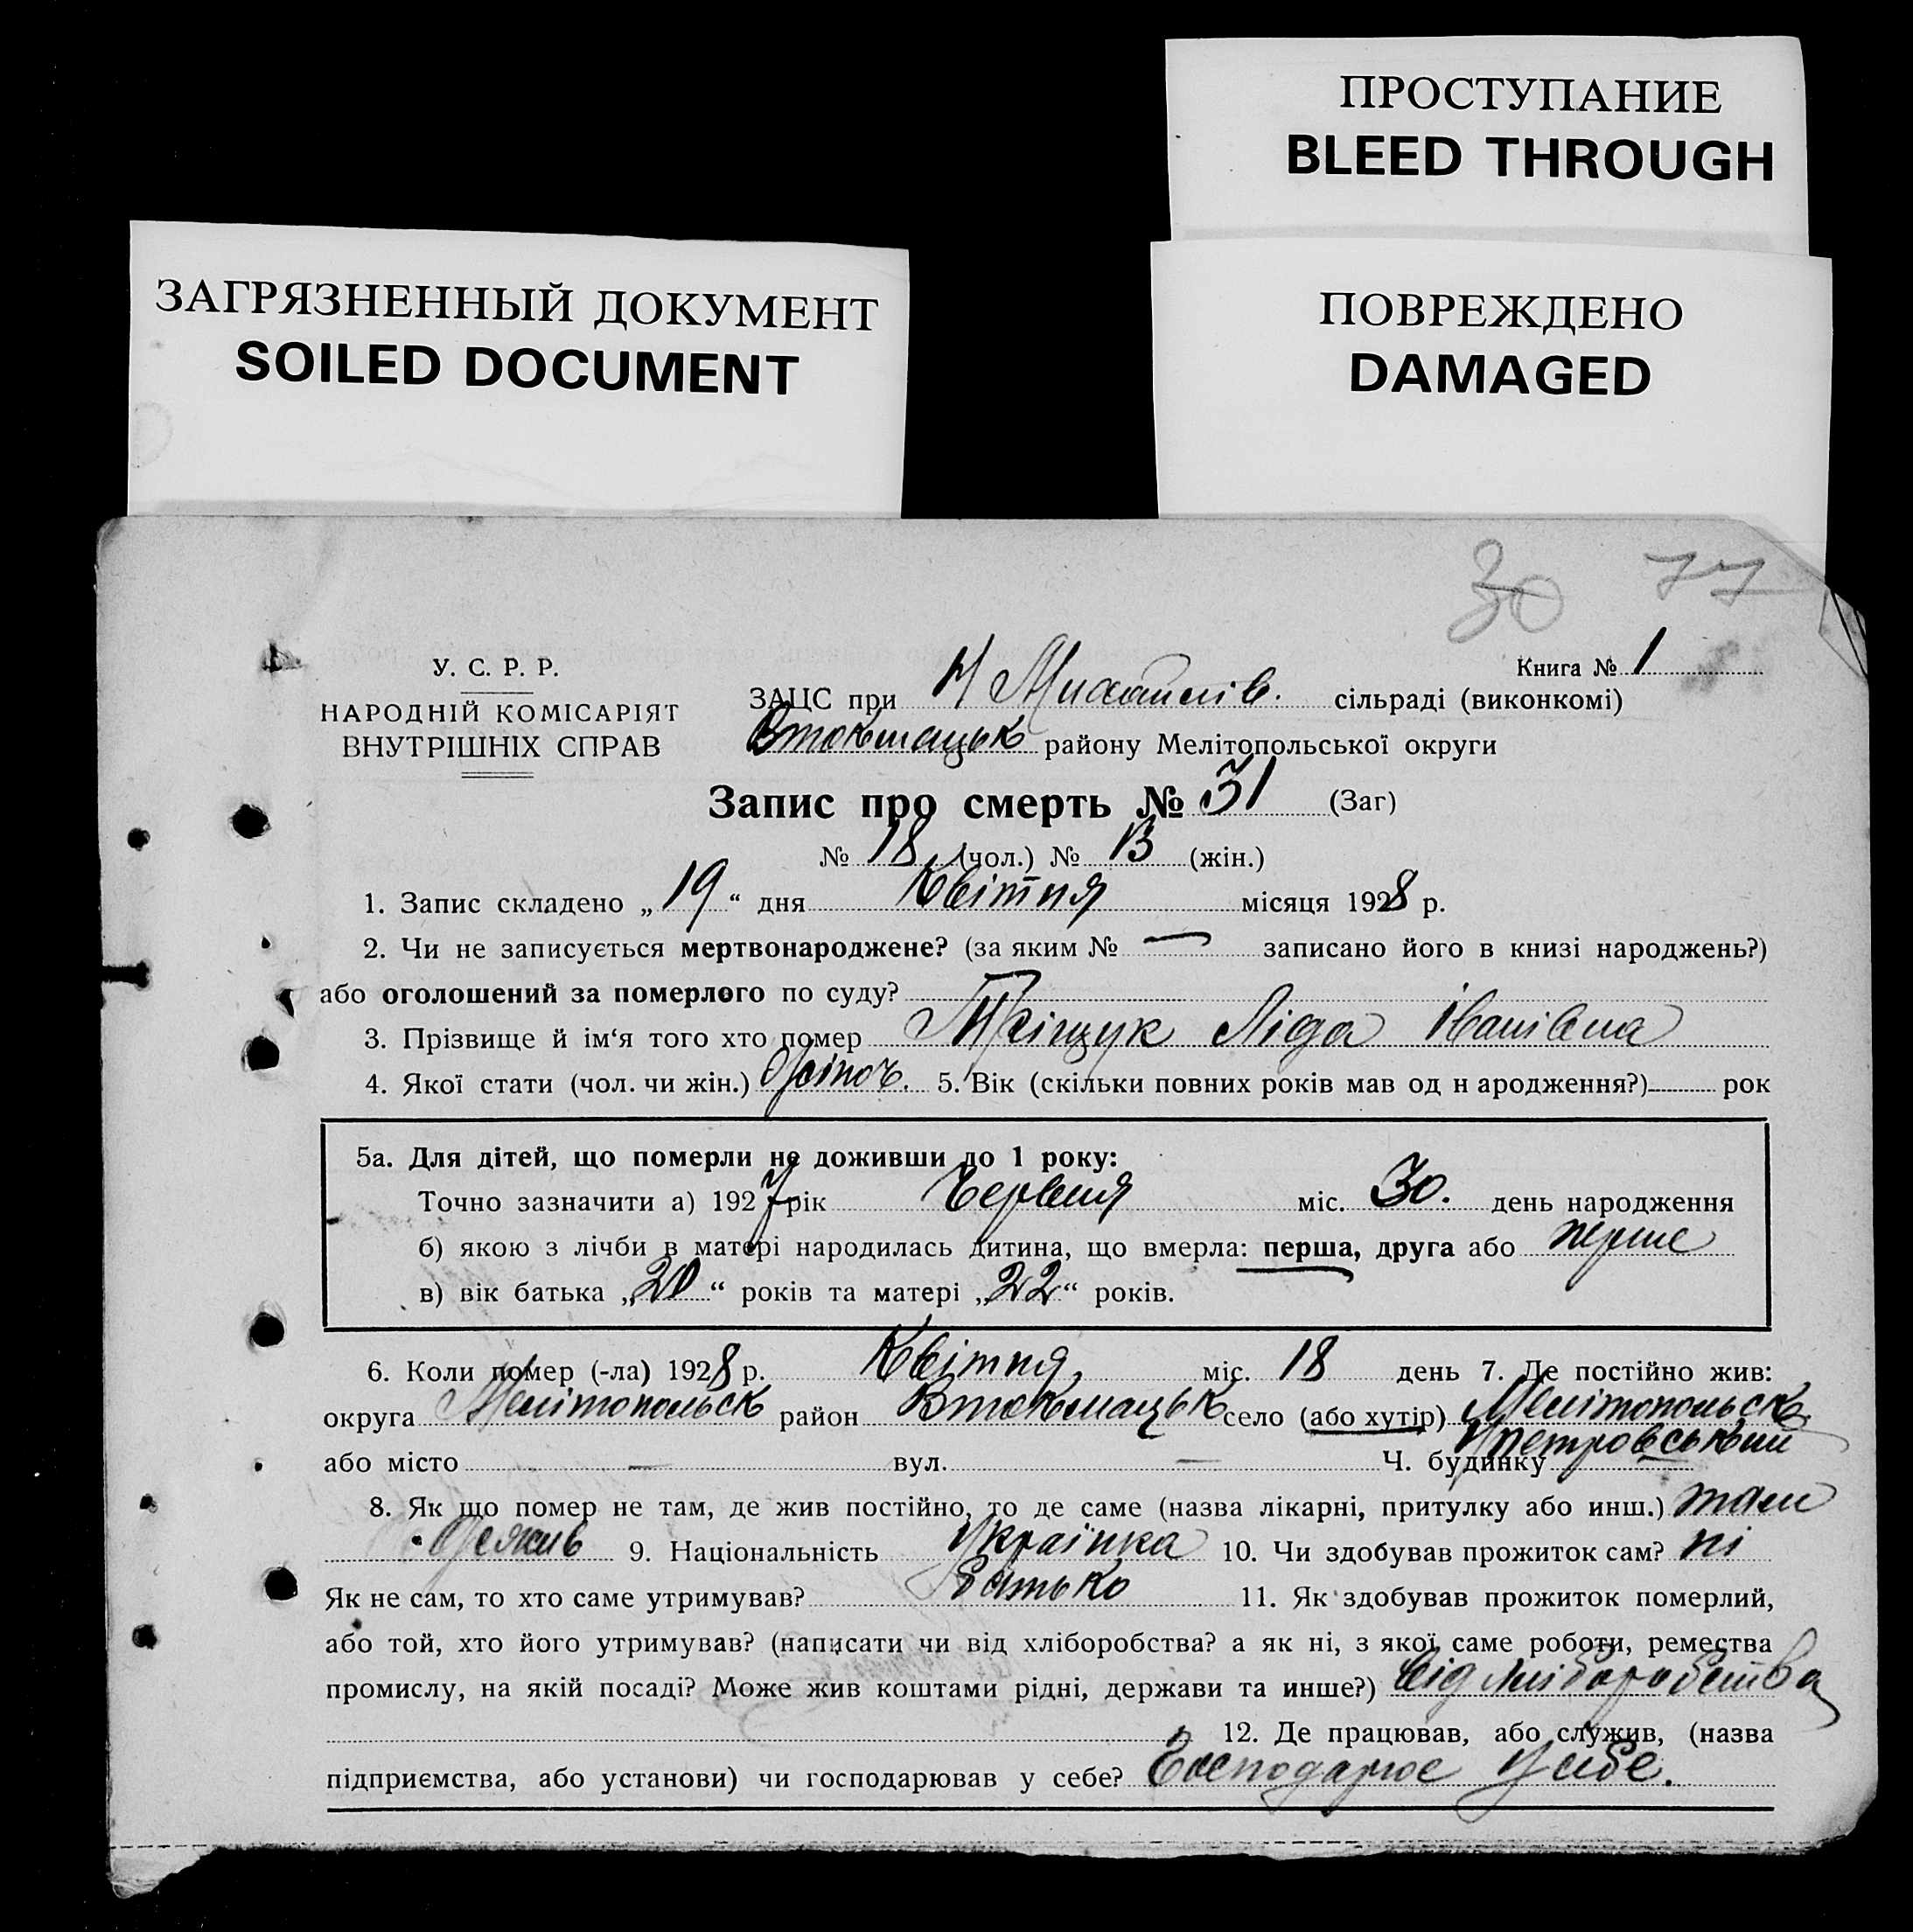 ПРОСТУПАНИЕ
BLEED THROUGH
ЗАГРЯЗНЕННЫЙ ДОКУМЕНТ
SOILED DOCUMENT
ПОВРЕЖДЕНО
DAMAGED
30 77
Книга № 1
У. С. Р. Р.
НАРОДНІЙ КОМІСАРІЯТ
ВНУТРІШНІХ СПРАВ
ЗАЦС при Н Михайлів. сільраді (виконкомі)
Втокмацьк району Мелітопольської округи
Запис про смерть № 31 (Заг)
№ 18 (чол.) № 13 (жін.)
1. Запис складено „19“ дня Квітня місяця 1928 р.
2. Чи не записується мертвонароджене? (за яким № — записано його в книзі народжень?)
або оголошений за померлого по суду?
3. Прізвище й ім'я того хто помер Ліда Іванівна
4. Якої стати (чол. чи жін.) жіноч. 5. Вік (скільки повних років мав од н ародження?) рок
5а. Для дітей, що померли не доживши до 1 року:
Точно зазначити а) 1927 рік Червня міс. 30. день народження
б) якою з лічби в матері народилась дитина, що вмерла: перша, друга або перше
в) вік батька „20“ років та матері „22“ років.
6. Коли помер (-ла) 1928 р. Квітня міс. 18 день 7. Де постійно жив:
округа Мелітопольск район Втокмацьк село (або хутір) Мелітопольск.
або місто — вул. — Ч. будинку петровський
8. Як що помер не там, де жив постійно, то де саме (назва лікарні, притулку або инш.) там
де жив 9. Національність Українка 10. Чи здобував прожиток сам? ні
Як не сам, то хто саме утримував? Батько 11. Як здобував прожиток померлий,
або той, хто його утримував? (написати чи від хліборобства? а як ні, з якої саме роботи, ремества
промислу, на якій посаді? Може жив коштами рідні, держави та инше?) від хліборобства
12. Де працював, або служив, (назва
підприємства, або установи) чи господарював у себе? Господарює у себе.